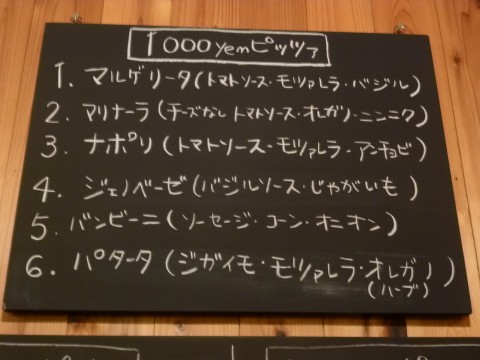 1000yenピッツァ
1. マルゲリータ(トマトソース・モツァレラ・バジル)
2. マリナーラ(チーズなし トマトソース・オレガノ・ニンニク)
3. ナポリ(トマトソース・モツァレラ・アンチョビ)
4. ジェノベーゼ(バジルソース・じゃがいも)
5. バンビーニ(ソーセージ・コーン・オニオン)
6. パタータ(ジガイモ・モツァレラ・オレガノ)
(ハーブ)